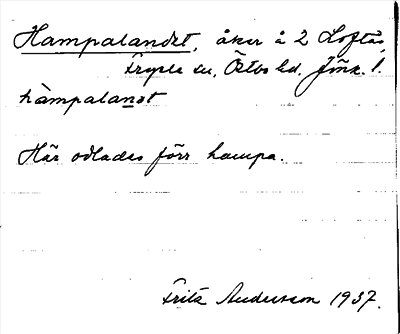 Hampalandet, åker å 2 Loftås
Fryele sn, Östbo hd. Jönk. l.
hàmpalanət
Här odlades förr hampa.
Fritz Andersson 1937.